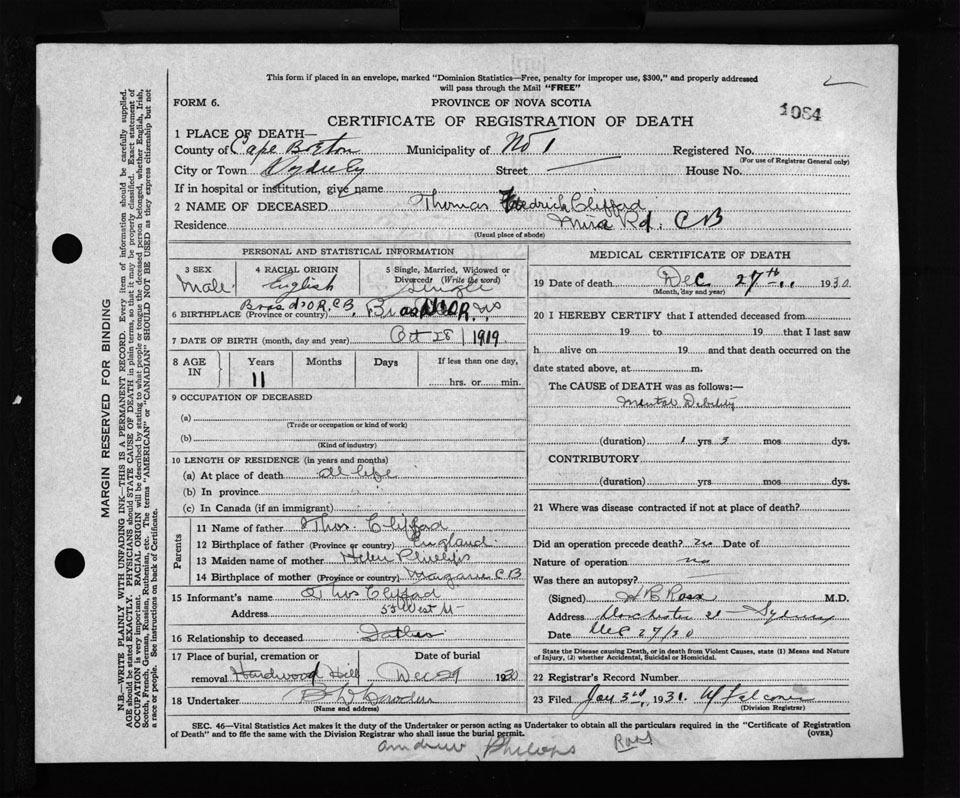 This form if placed in an envelope, marked "Dominion Statistics—Free, penalty for improper use, $300," and properly addressed
will pass through the Mail "FREE"
FORM 6.
PROVINCE OF NOVA SCOTIA
1084
CERTIFICATE OF REGISTRATION OF DEATH
1 PLACE OF DEATH—
County of Cape Breton Municipality of No 1 Registered No.
(For use of Registrar General only)
City or Town Sydney Street — House No.
If in hospital or institution, give name
2 NAME OF DECEASED Thomas Fredrich Clifford
Residence Mira Rd. CB
(Usual place of abode)
PERSONAL AND STATISTICAL INFORMATION
3 SEX Male
4 RACIAL ORIGIN English
5 Single, Married, Widowed or Divorced? (Write the word) Single
6 BIRTHPLACE (Province or country)
7 DATE OF BIRTH (month, day and year) Oct 28 1919
8 AGE IN Years 11 Months Days If less than one day, hrs. or min.
9 OCCUPATION OF DECEASED
(a)
(Trade or occupation or kind of work)
(b)
(Kind of industry)
10 LENGTH OF RESIDENCE (in years and months)
(a) At place of death all life
(b) In province
(c) In Canada (if an immigrant)
Parents
11 Name of father Thos. Clifford
12 Birthplace of father (Province or country) England
13 Maiden name of mother Helen Phillips
14 Birthplace of mother (Province or country) Margaree CB
15 Informant's name Thos Clifford
Address West St
16 Relationship to deceased Father
17 Place of burial, cremation or removal Hardwood Hill Date of burial Dec 29 1930
18 Undertaker
(Name and address)
MEDICAL CERTIFICATE OF DEATH
19 Date of death Dec 27th 1930
(Month, day and year)
20 I HEREBY CERTIFY that I attended deceased from
19 to 19 that I last saw
h alive on 19 and that death occurred on the
date stated above, at m.
The CAUSE of DEATH was as follows:—
Mental Debility
(duration) 1 yrs 3 mos dys.
CONTRIBUTORY
(duration) yrs mos dys.
21 Where was disease contracted if not at place of death?
Did an operation precede death? no Date of
Nature of operation no
Was there an autopsy?
(Signed) H B Ross M.D.
Address Dorchester St Sydney
Date Dec 27/30
State the Disease causing Death, or in death from Violent Causes, state (1) Means and Nature of Injury, (2) whether Accidental, Suicidal or Homicidal.
22 Registrar's Record Number
23 Filed Jan 3rd, 1931.
(Division Registrar)
SEC. 46—Vital Statistics Act makes it the duty of the Undertaker or person acting as Undertaker to obtain all the particulars required in the "Certificate of Registration
of Death" and to file the same with the Division Registrar who shall issue the burial permit. (OVER)
Andrew Phillips
MARGIN RESERVED FOR BINDING
N.B.—WRITE PLAINLY WITH UNFADING INK—THIS IS A PERMANENT RECORD. Every item of information should be carefully supplied.
AGE should be stated EXACTLY. PHYSICIANS should STATE CAUSE OF DEATH in plain terms, so that it may be properly classified. Exact statement of
OCCUPATION is very important. RACIAL ORIGIN will be described by stating to what people or tongue the deceased person belonged, whether English, Irish,
Scotch, French, German, Russian, Ruthenian, etc. The terms "AMERICAN" or "CANADIAN" SHOULD NOT BE USED as they express citizenship but not
a race or people. See instructions on back of Certificate.